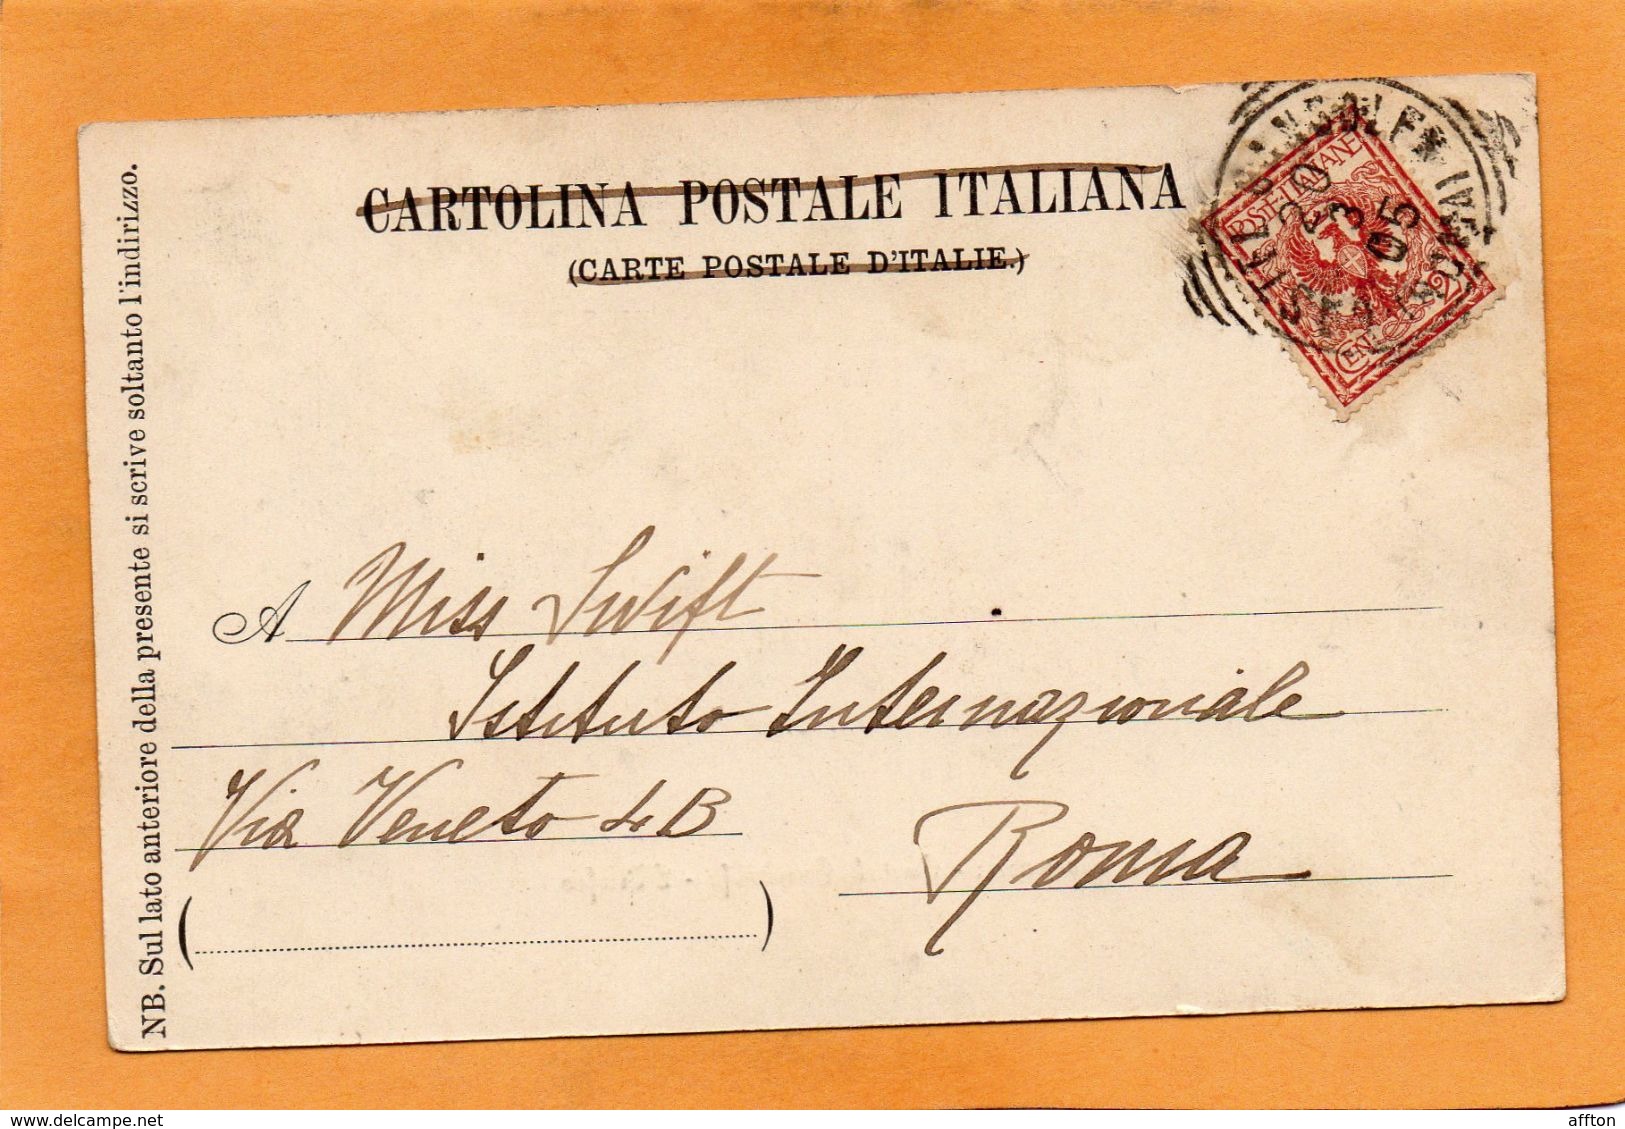 CARTOLINA POSTALE ITALIANA
(CARTE POSTALE D'ITALIE.)
POSTE ITALIANE
20
3
05
CENT 2
NB. Sul lato anteriore della presente si scrive soltanto l'indirizzo.
A Miss Swift
Istituto Internazionale
Via Veneto 4B
Roma
delcampe.net
affton